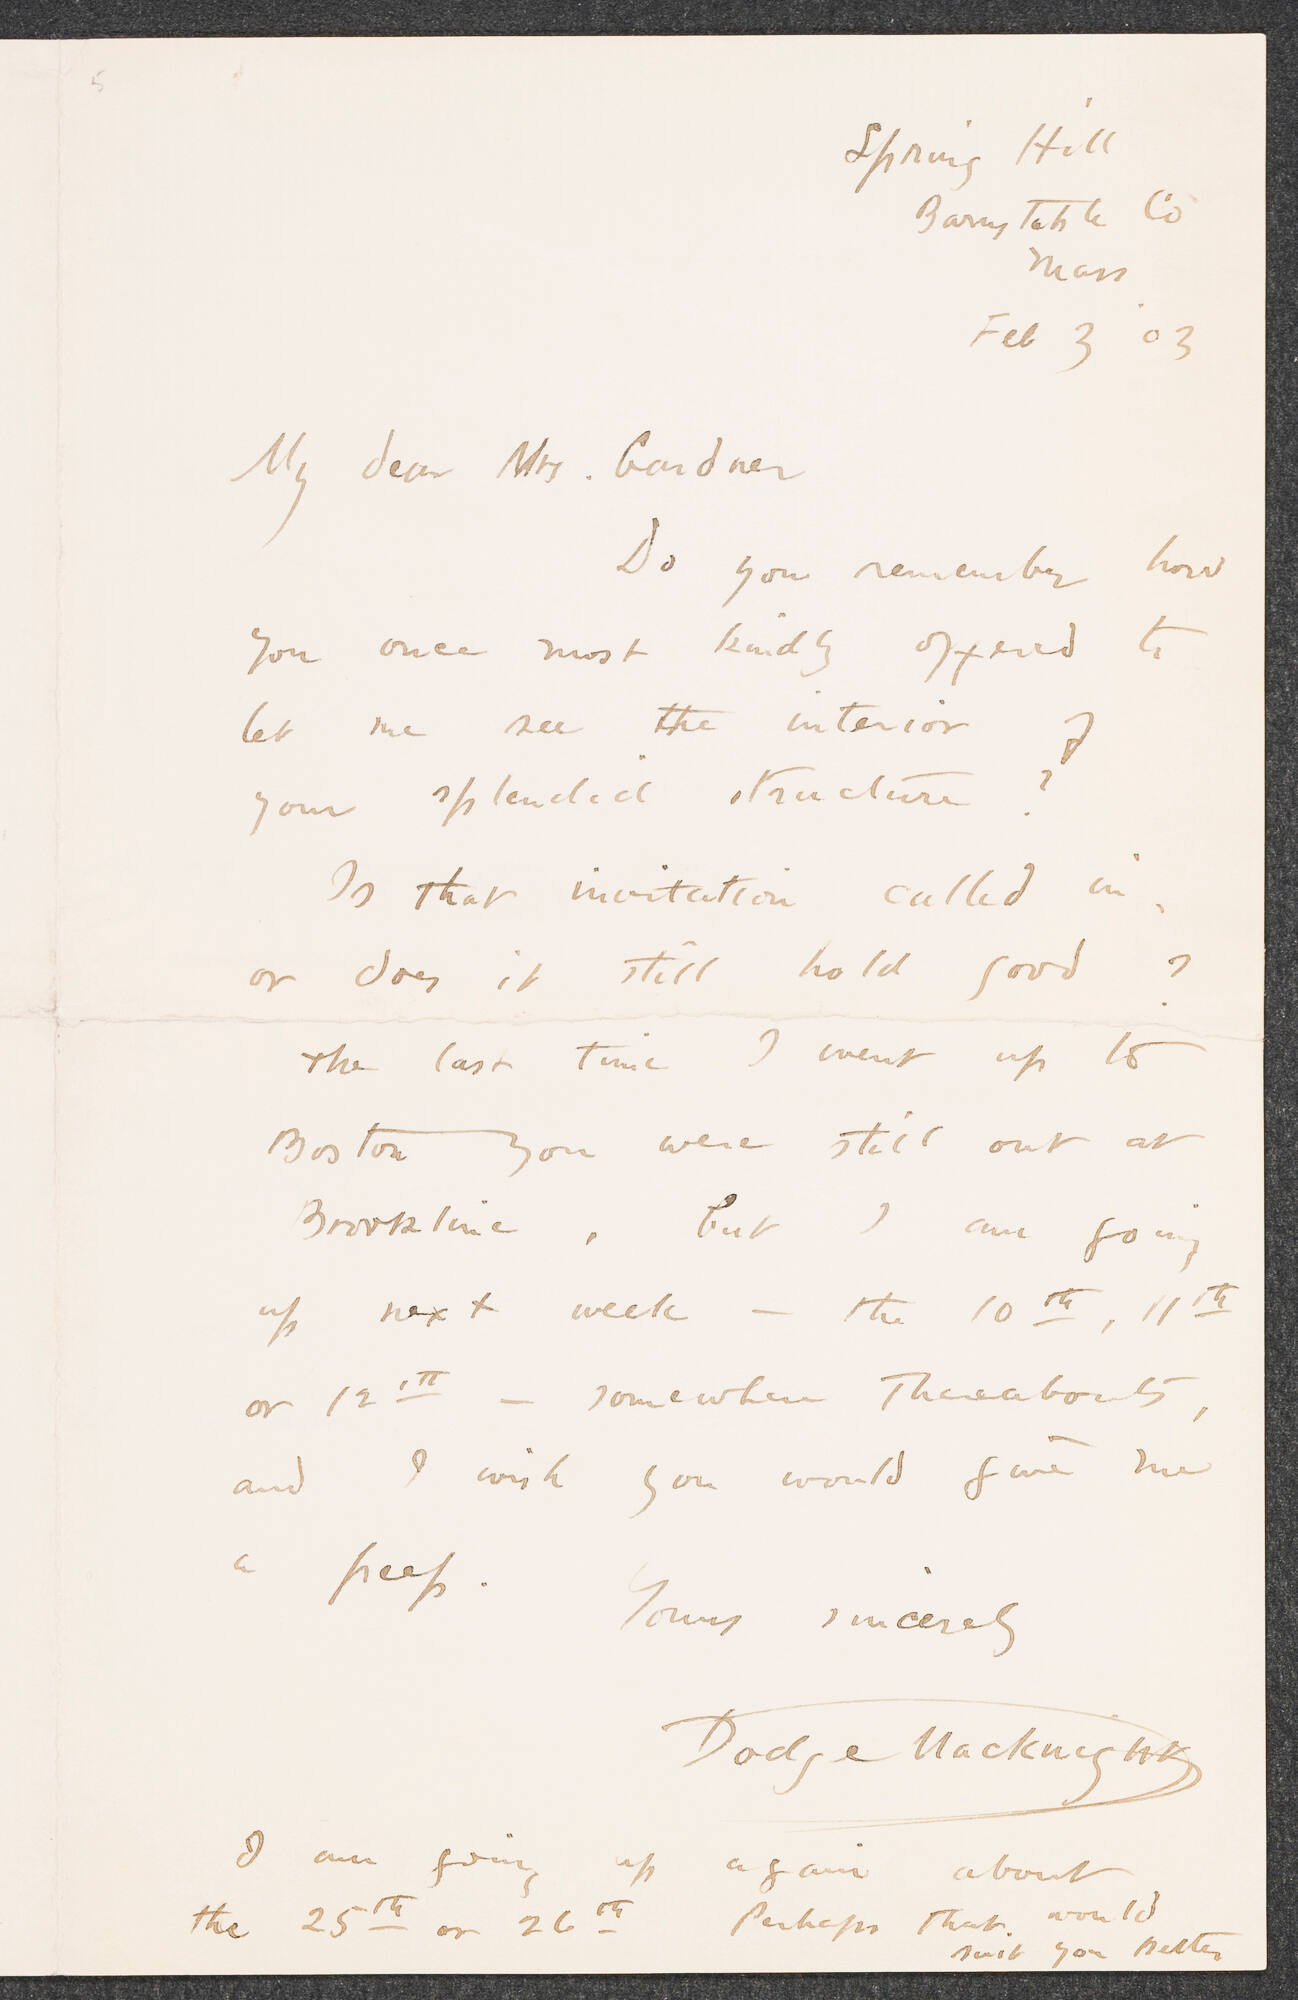 5
Spring Hill
Barnstable Co
Mass
Feb 3 '03
My dear Mrs. Gardner
Do you remember how
you once most kindly offered to
let me see the interior of
your splendid structure?
Is that invitation called in,
or does it still hold good?
the last time I went up to
Boston you were still out at
Brookline, but I am going
up next week – the 10th, 11th
or 12th – somewhere thereabouts,
and I wish you would give me
a peep.
Yours sincerely
Dodge Macknight
I am going up again about
the 25th or 26th Perhaps that would
suit you better